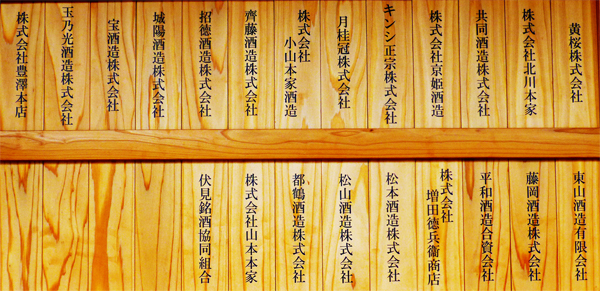 黄桜株式会社
株式会社北川本家
共同酒造株式会社
株式会社京姫酒造
キンシ正宗株式会社
月桂冠株式会社
株式会社
小山本家酒造
齊藤酒造株式会社
招德酒造株式会社
城陽酒造株式会社
宝酒造株式会社
玉乃光酒造株式会社
株式会社豊澤本店
東山酒造有限会社
藤岡酒造株式会社
平和酒造合資会社
株式会社
増田德兵衞商店
松本酒造株式会社
松山酒造株式会社
都鶴酒造株式会社
株式会社山本本家
伏見銘酒協同組合